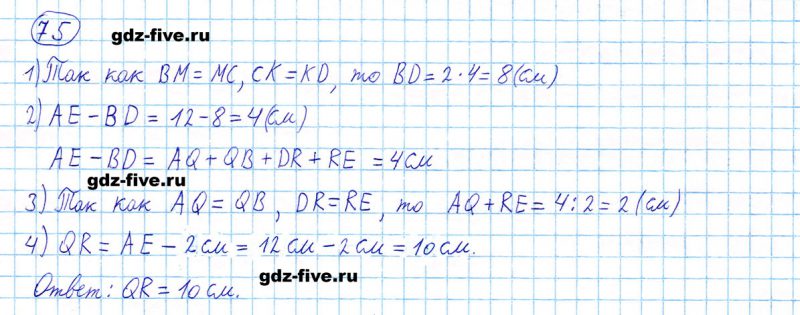 75 gdz-five.ru
1) Так как BM = MC, CK = KD, то BD = 2 · 4 = 8 (см)
2) AE – BD = 12 – 8 = 4 (см)
AE – BD = AQ + QB + DR + RE = 4 см
gdz-five.ru
3) Так как AQ = QB, DR = RE, то AQ + RE = 4 : 2 = 2 (см)
4) QR = AE – 2 см = 12 см – 2 см = 10 см.
gdz-five.ru
Ответ: QR = 10 см.